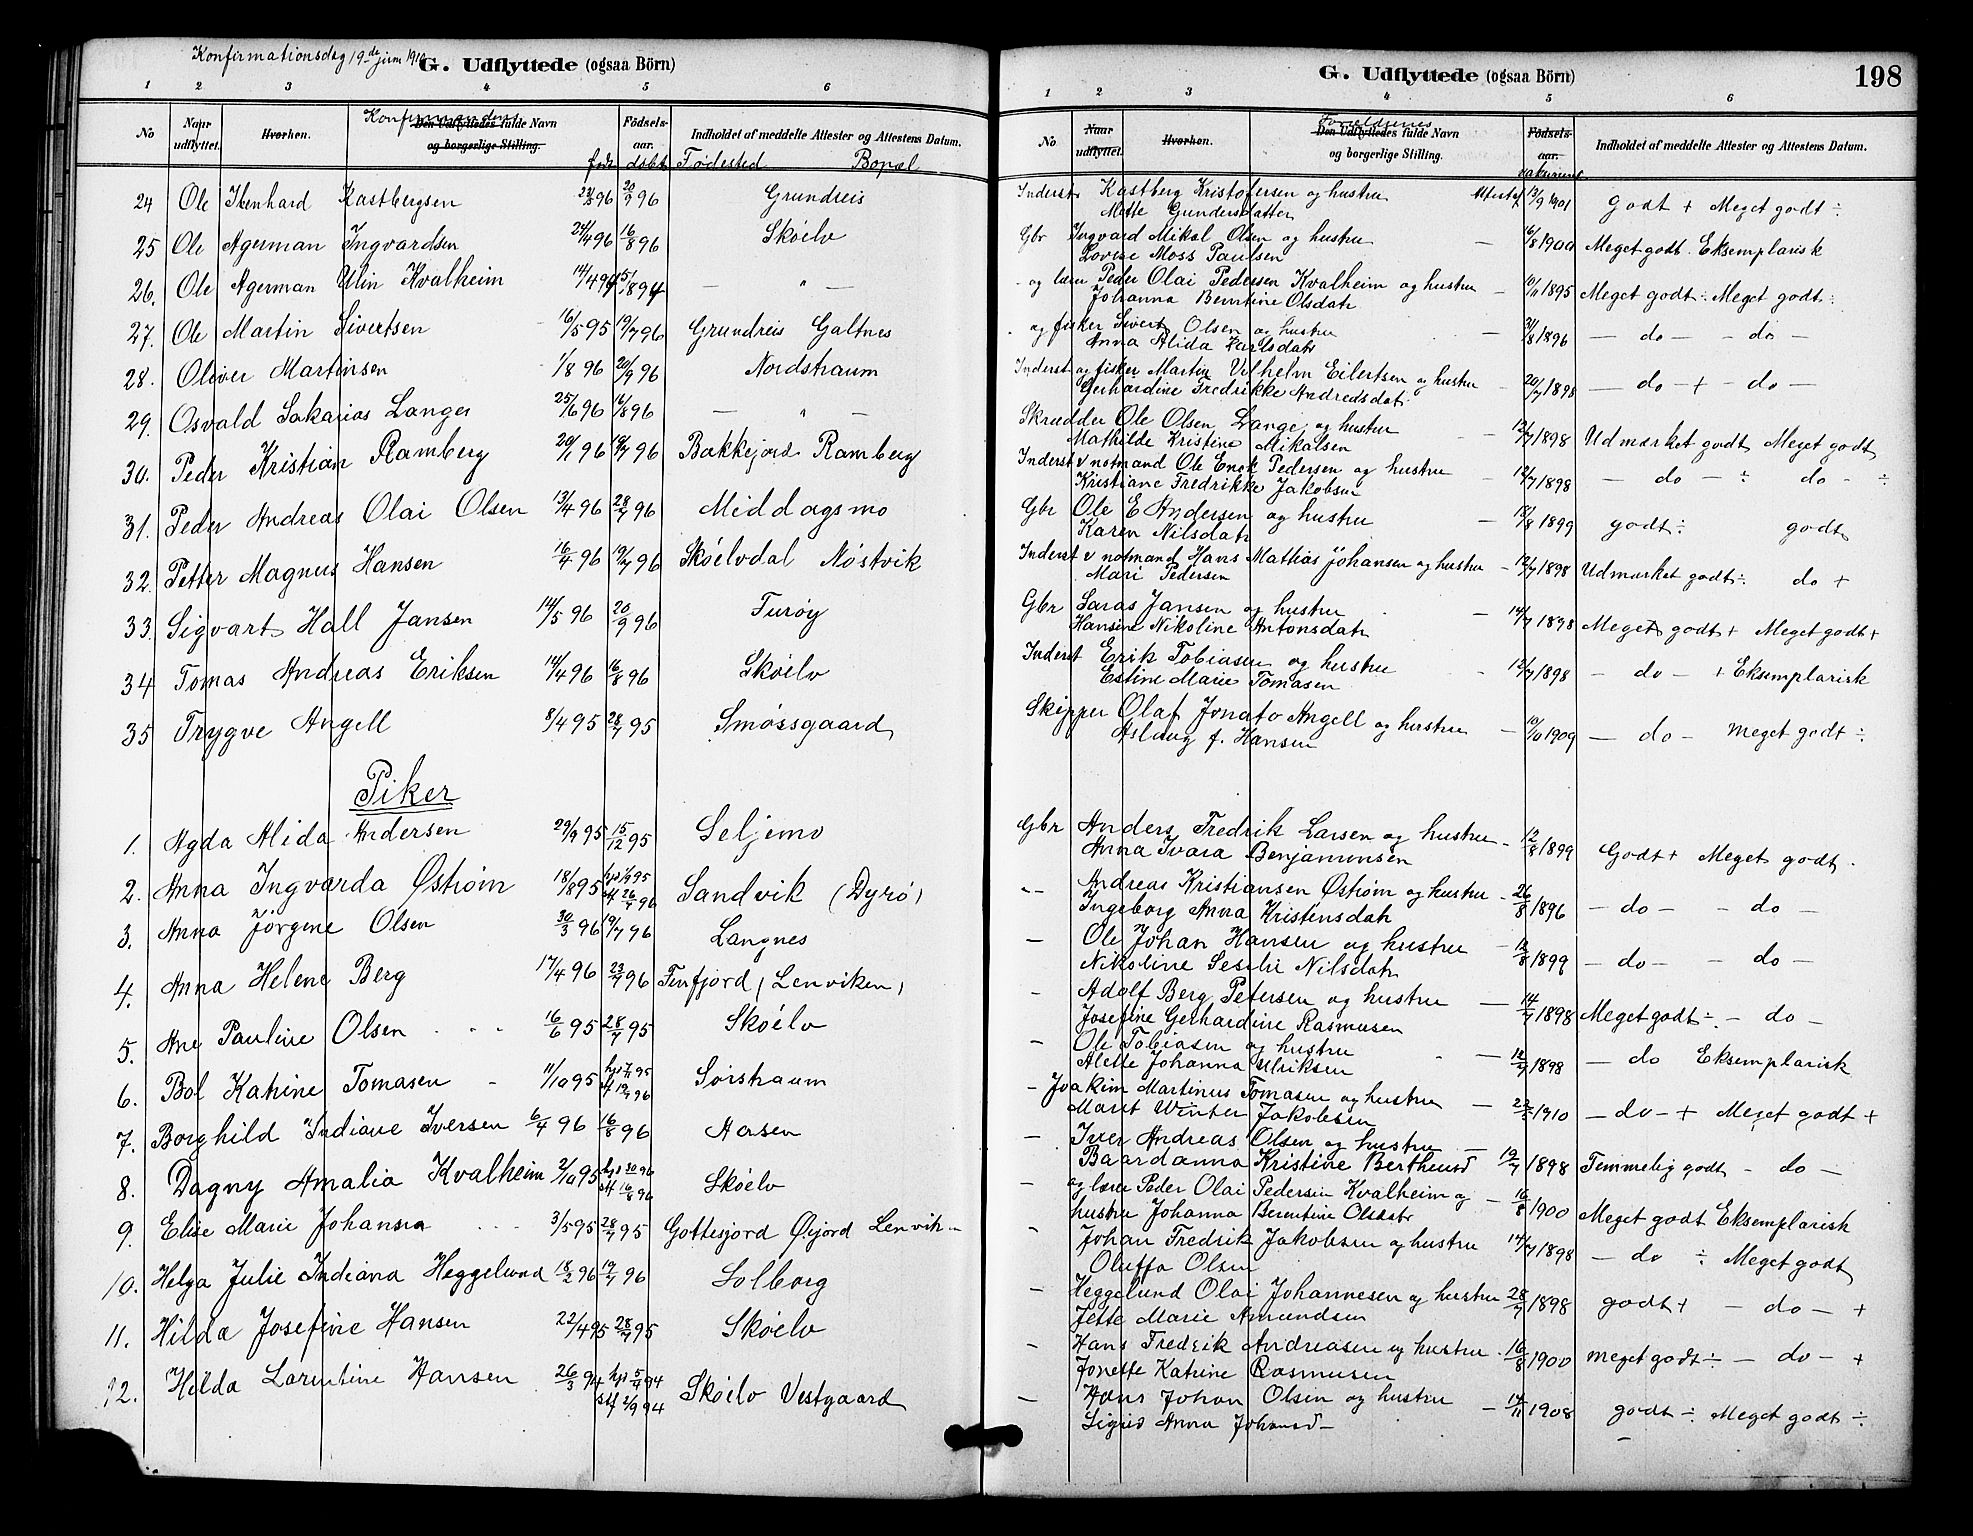 Konfirmationsdag 19de juni 1910
G. Udflyttede (ogsaa Börn)
1 2 3 4 5 6
No
Naar udflyttet.
Hvorhen.
Konfirmandens
Den Udflyttedes fulde Navn
og borgerlige Stilling.
Födsels-
aar.
født døbt
Indholdet af meddelte Attester og Attestens Datum.
Fødested Bopæl
24 Ole Ibenhard Kastbergsen 96 20/9 96 Grundreis
25 Ole Agerman Ingvardsen 24/4 96 16/8 96 Skóelv
26. Ole Agerman Ulin Kvalheim 14/4 94 1894 — " —
27. Ole Martin Sivertsen 16/5 95 19/7 96 Grundreis Galtnes
28. Oliver Martinsen 1/8 96 20/9 96 Nordstraum
29. Osvald Sakarias Langer 25/6 96 16/8 96 — " —
30. Peder Kristian Ramberg 20/1 96 19/7 96 Bakkejord Ramberg
31. Peder Andreas Olai Olsen 13/4 96 28/7 96 Middagsmo
32. Petter Magnus Hansen 16/4 96 19/7 96 Skóelvdal Nóstvik
33. Sigvart Hall Jansen 14/5 96 20/9 96 Turóy
34 Tomas Andreas Eriksen 14/4 96 16/8 96 Skóelv
35 Trygve Angell 8/4 95 28/7 95 Smóssgaard
Piker
1. Agda Alida Andersen 29/9 95 15/12 95 Seljemo
2. Anna Ingvarda Østrøm 18/8 95 hjd 1/9 95 stf 26/7 96 Sandvik (Dyrø)
3. Anna Jörgene Olsen 30/3 96 19/7 96 Langnes
4. Anna Helene Berg 17/4 96 23/7 96 Finfjord (Lenviken)
5. Ane Pauline Olsen 16/6 95 28/7 95 Skóelv
6. Bol Katrine Tomasen 11/10 95 hjd 17/11 95 stf 19/7 96 Sórstraum
7. Borghild Indiane Iversen 6/4 96 16/8 96 Aarsen
8. Dagny Amalia Kvalheim 2/10 95 hjd 96 stf 16/8 96 Skóelv
9. Elise Marie Johansen 3/5 95 28/7 95 Gottesjord Øijord Lenvik
10. Helga Julie Indiana Heggelund 18/2 96 19/7 96 Solborg
11. Hilda Josefine Hansen 22/4 95 28/7 95 Skóelv
12. Hilda Larentine Hansen 26/3 94 hjd 5/4 94 stf 2/9 94 Skóelv Vestgaard
G. Udflyttede (ogsaa Börn)
198
1 2 3 4 5 6
No
Naar udflyttet.
Hvorhen.
Forældrenes
Den Udflyttedes fulde Navn
og borgerlige Stilling.
Födsels-
aar.
vakcineret
Indholdet af meddelte Attester og Attestens Datum.
Inderst Kastberg Kristofersen og hustru Attest af 12/9 1901 godt + Meget godt ÷
Mette Gundersdatter
Gbr Ingvard Mikal Olsen og hustru — 16/8 1900 Meget godt. Eksemplarisk
Lovise Moss Paulsen
- og lærer Peder Olai Pedersen Kvalheim og hustru — 10/11 1895 Meget godt ÷ Meget godt ÷
Johanna Berntine Olsdatr
- og fisker Sivert Olsen og hustru — 31/8 1896 — do — — do —
Anna Alida Karlsdatr
Inderst og fisker Martin Vilhelm Eilertsen og hustru — 20/7 1898 — do — + — do —
Gerhardine Fredrikke Andredsdatr
Skrædder Ole Olsen Lange og hustru — 12/7 1898 Udmærket godt Meget godt
Mathilde Kristine Mikalsen
Inderst v notmand Ole Enok Pedersen og hustru — 12/7 1898 — do — ÷ do — ÷
Kristiane Fredrikke Jakobsen
Gbr Ole E Andersen og hustru — 18/8 1899 godt ÷ godt
Karen Nilsdatr
Inderst v notmand Hans Mathias Johansen og hustru — 12/7 1898 Udmærket godt ÷ do +
Mari Pedersen
Gbr Saras Jansen og hustru — 14/7 1898 Meget godt + Meget godt +
Hansine Nikoline Antonsdatr
Inderst Erik Tobiasen og hustru — 12/7 1898 — do — + Eksemplarisk
Estine Marie Tomasen
Skipper Olaf Jonato Angell og hustru — 10/10 1909 — do — Meget godt ÷
Aslaug f. Hansen
Gbr Anders Fredrik Larsen og hustru — 12/8 1899 Godt + Meget godt
Anna Ivara Benjaminsen
— Andreas Kristiansen Østrøm og hustru — 26/8 1896 — do — — do —
Ingeborg Anna Kristensdatr
— Ole Johan Hansen og hustru — 12/8 1899 — do — — do —
Nikoline Seselie Nilsdatr
— Adolf Berg Petersen og hustru — 14/7 1898 Meget godt ÷ — do —
Josefine Gerhardine Rasmusen
— Ole Tobiasen og hustru — 12/7 1898 — do Eksemplarisk
Alette Johanna Ulriksen
— Joakim Martinus Tomasen og hustru — 1910 — do — + Meget godt +
Maret Winter Jakobsen
— Iver Andreas Olsen og hustru — 12/7 1898 Temmelig godt — do —
Baardanna Kristine Bertheusd
— og lærer Peder Olai Pedersen Kvalheim og — 16/8 1900 Meget godt Eksemplarisk
hustru Johanna Berentine Olsdatr
— Johan Fredrik Jakobsen og hustru 14/7 1898 — do ÷ Meget godt
Oluffa Olsen
— Heggelund Olai Johannesen og hustru 28/7 1898 godt + — do — +
Jette Marie Amundsen
— Hans Fredrik Andreasen og hustru — 16/8 1900 meget godt ÷ — do — +
Jonette Katrine Rasmusen
— Hans Johan Olsen og hustru — 1908 godt ÷ Meget godt ÷
Sigrid Anna Johansd —